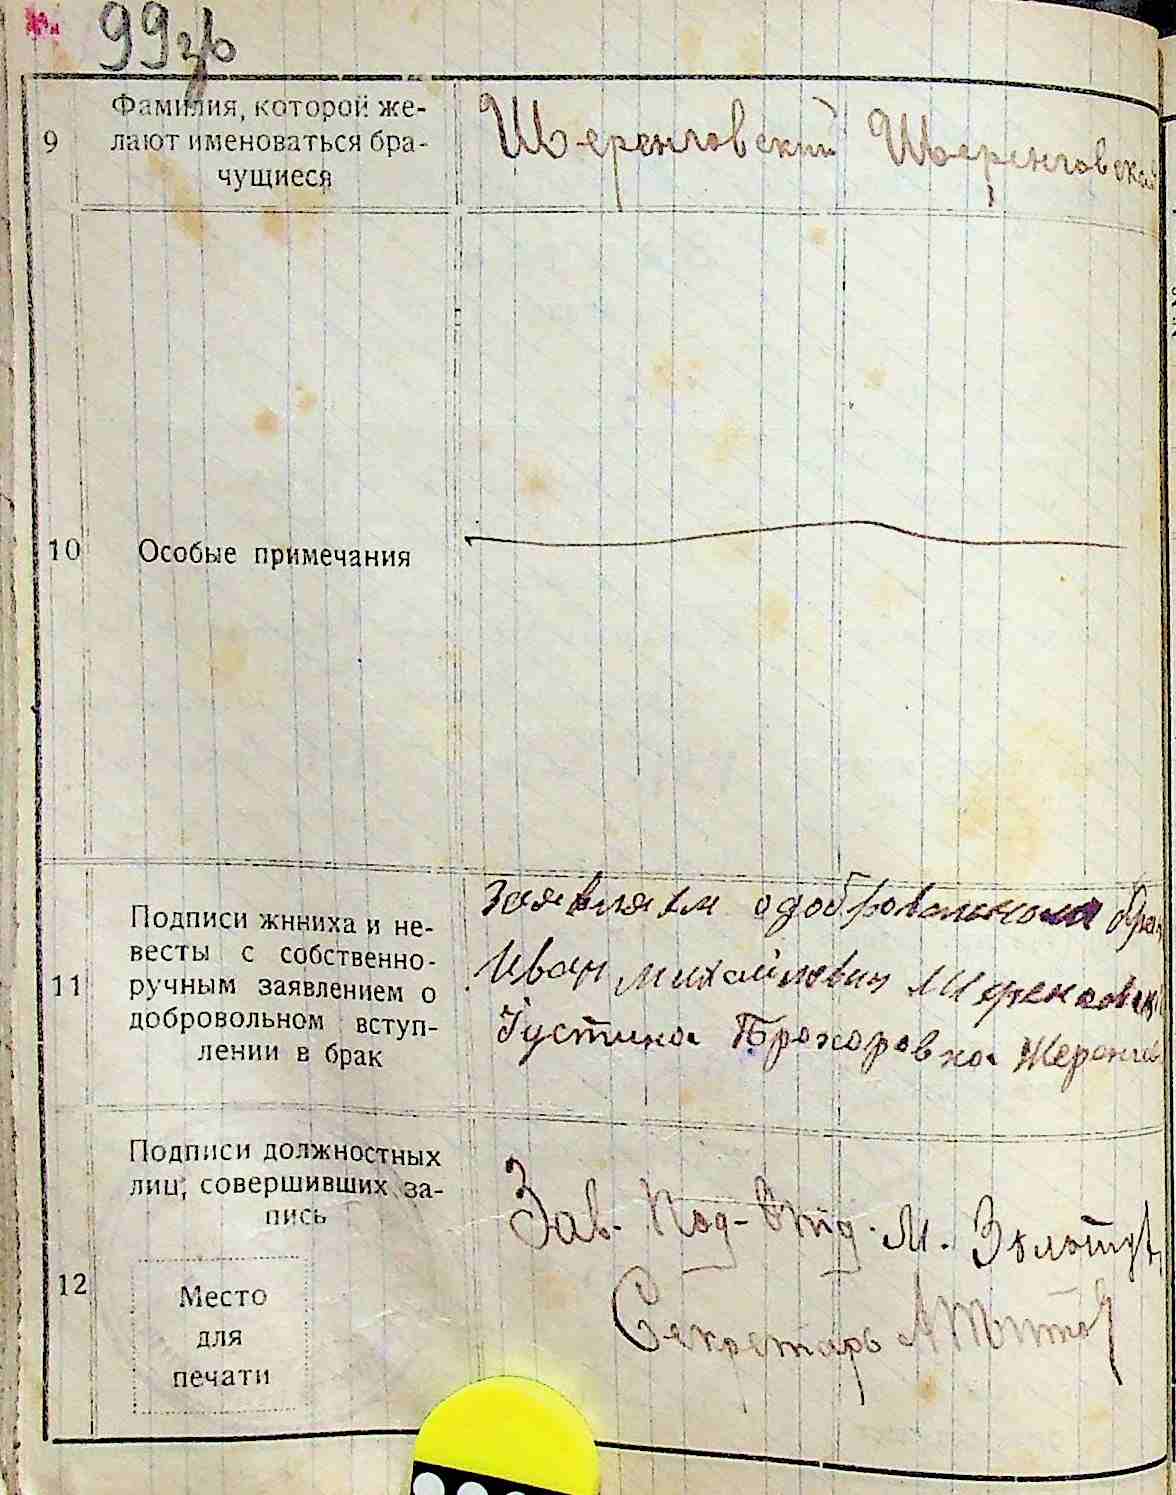 99зв
9
Фамилия, которой же-
лают именоваться бра-
чущиеся
Шеренговский Шеренговская
10
Особые примечания
11
Подписи жнниха и не-
весты с собственно-
ручным заявлением о
добровольном вступ-
лении в брак
Заявляем о добровольном
Иван Михайлович
Устина Прохоровна
12
Подписи должностных
лиц, совершивших за-
пись
Место
для
печати
Зав. Под-Отд. М.
Секретарь